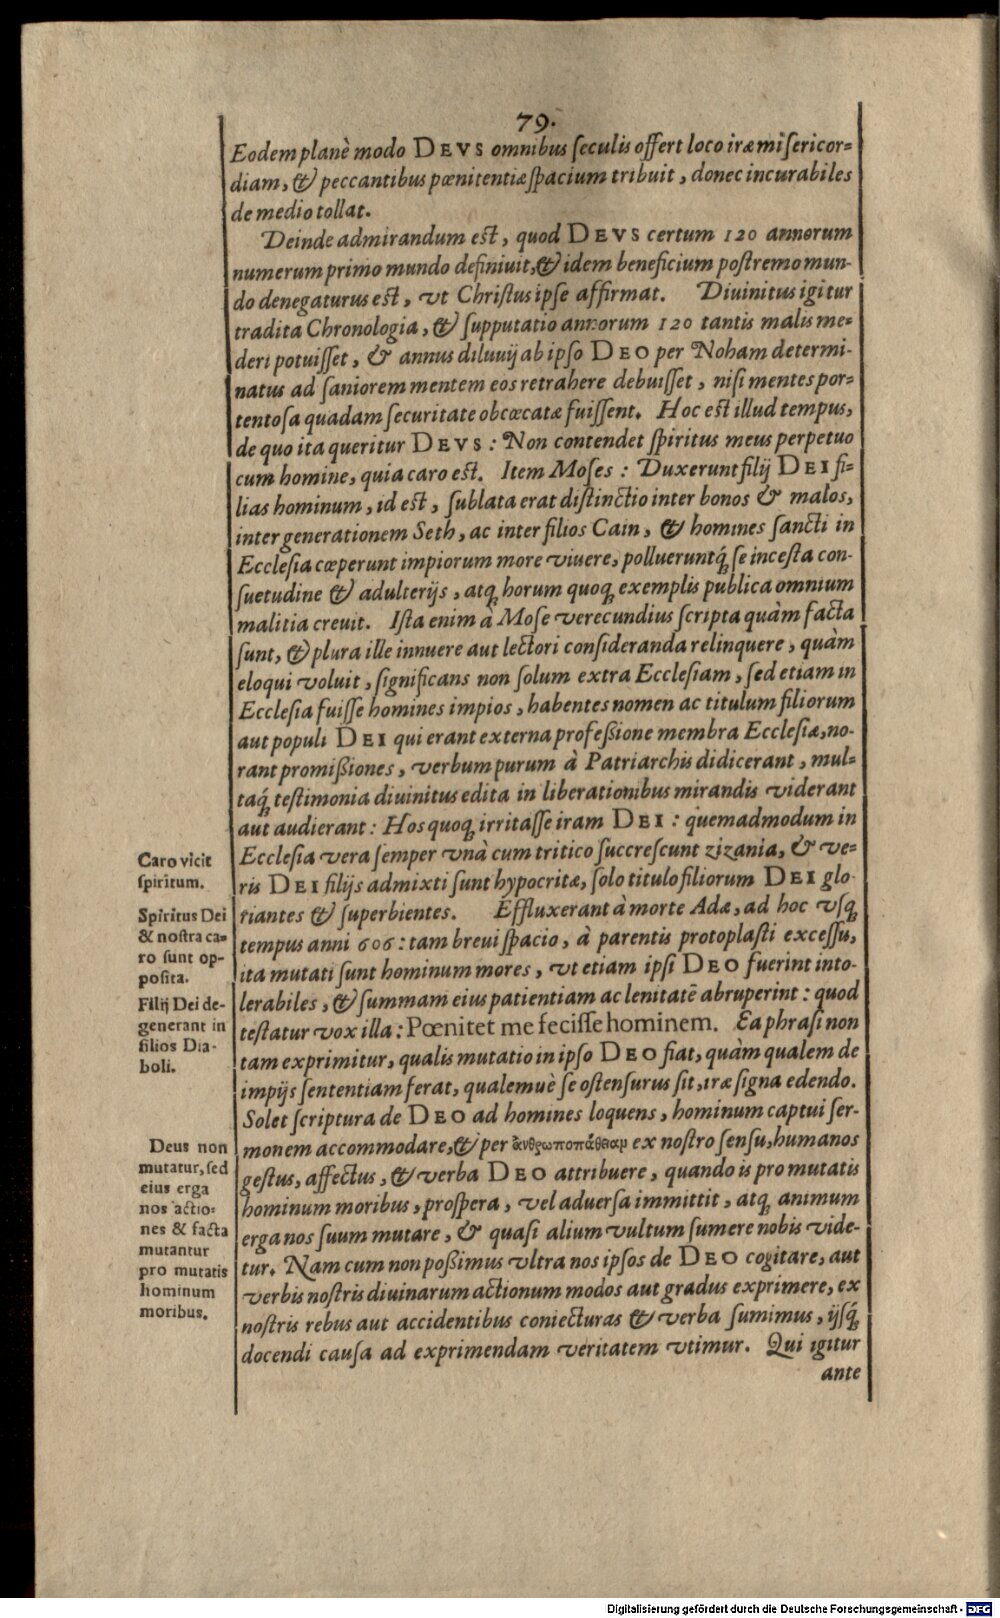 79.
Eodem planè modo DEVS omnibus ſeculis offert loco iræ miſericor-
diam, & peccantibus pœnitentiæ ſpacium tribuit, donec incurabiles
de medio tollat.
Deinde admirandum eſt, quod DEVS certum 120 annorum
numerum primo mundo definiuit, & idem beneficium poſtremo mun-
do denegaturus eſt, vt Chriſtus ipſe affirmat. Diuinitus igitur
tradita Chronologia, & ſupputatio annorum 120 tantis malis me-
deri potuiſſet, & annus diluuij ab ipſo DEO per Noham determi-
natus ad ſaniorem mentem eos retrahere debuiſſet, niſi mentes por-
tentoſa quadam ſecuritate obcœcatæ fuiſſent. Hoc eſt illud tempus,
de quo ita queritur DEVS: Non contendet ſpiritus meus perpetuo
cum homine, quia caro eſt. Item Moſes: Duxerunt filij DEI fi-
lias hominum, id eſt, ſublata erat diſtinctio inter bonos & malos,
inter generationem Seth, ac inter filios Cain, & homines ſancti in
Eccleſia cœperunt impiorum more viuere, pollueruntq́; ſe inceſta con-
ſuetudine & adulterijs, atq; horum quoq; exemplis publica omnium
malitia creuit. Iſta enim à Moſe verecundius ſcripta quàm facta
ſunt, & plura ille innuere aut lectori conſideranda relinquere, quàm
eloqui voluit, ſignificans non ſolum extra Eccleſiam, ſed etiam in
Eccleſia fuiſſe homines impios, habentes nomen ac titulum filiorum
aut populi DEI qui erant externa profeßione membra Eccleſiæ, no-
rant promißiones, verbum purum à Patriarchis didicerant, mul-
taq́; teſtimonia diuinitus edita in liberationibus mirandis viderant
aut audierant: Hos quoq; irritaſſe iram DEI: quemadmodum in
Eccleſia vera ſemper vnà cum tritico ſuccreſcunt zizania, & ve-
ris DEI filijs admixti ſunt hypocritæ, ſolo titulo filiorum DEI glo-
riantes & ſuperbientes. Effluxerant à morte Adæ, ad hoc vſq;
tempus anni 606: tam breui ſpacio, à parentis protoplaſti exceſſu,
ita mutati ſunt hominum mores, vt etiam ipſi DEO fuerint into-
lerabiles, & ſummam eius patientiam ac lenitatē abruperint: quod
teſtatur vox illa: Pœnitet me feciſſe hominem. Ea phraſi non
tam exprimitur, qualis mutatio in ipſo DEO fiat, quàm qualem de
impijs ſententiam ferat, qualemuè ſe oſtenſurus ſit, iræ ſigna edendo.
Solet ſcriptura de DEO ad homines loquens, hominum captui ſer-
monem accommodare, & per ἀνθρωποπάθειαμ ex noſtro ſenſu, humanos
geſtus, affectus, & verba DEO attribuere, quando is pro mutatis
hominum moribus, proſpera, vel aduerſa immittit, atq; animum
erga nos ſuum mutare, & quaſi alium vultum ſumere nobis vide-
tur. Nam cum non poßimus vltra nos ipſos de DEO cogitare, aut
verbis noſtris diuinarum actionum modos aut gradus exprimere, ex
noſtris rebus aut accidentibus coniecturas & verba ſumimus, ijſq́;
docendi cauſa ad exprimendam veritatem vtimur. Qui igitur
ante
Caro vicit
ſpiritum.
Spiritus Dei
& noſtra ca-
ro ſunt op-
poſita.
Filij Dei de-
generant in
filios Dia-
boli.
Deus non
mutatur, ſed
eius erga
nos actio-
nes & facta
mutantur
pro mutatis
hominum
moribus.
Digitalisierung gefördert durch die Deutsche Forschungsgemeinschaft - DFG